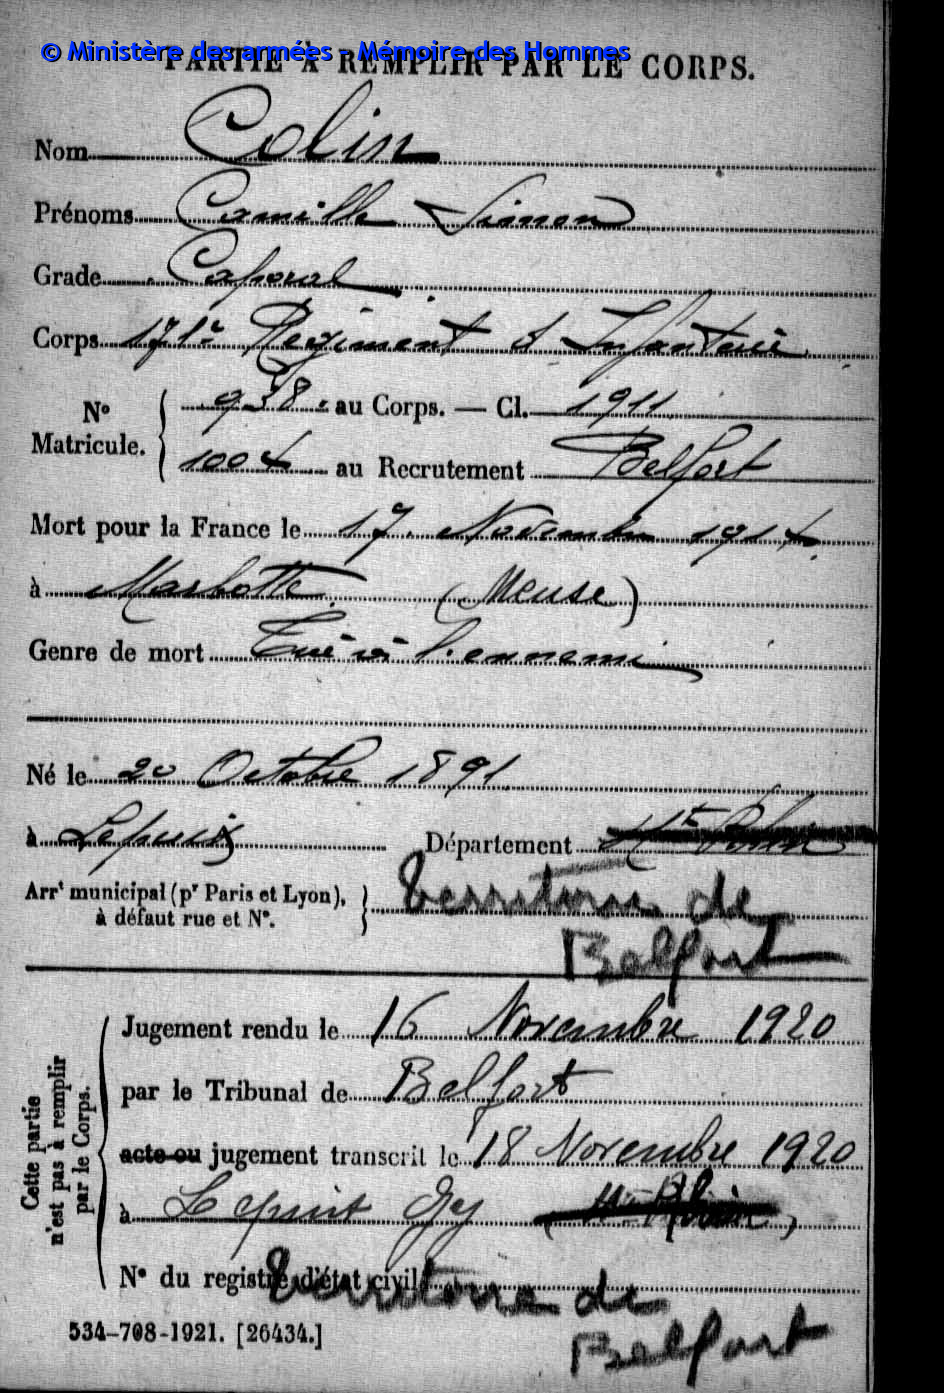 © Ministère des armées - Mémoire des Hommes
PARTIE À REMPLIR PAR LE CORPS.
Nom Colin
Prénoms Camille Simon
Grade Caporal
Corps 171e Régiment d'Infanterie
No Matricule. 938 au Corps. — Cl. 1911
1004 au Recrutement Belfort
Mort pour la France le 17 Novembre 1914
à Marbotte (Meuse)
Genre de mort Tué à l'ennemi
Né le 20 Octobre 1891
à Lepuix Département Ht Rhin
Arrt municipal (pr Paris et Lyon), à défaut rue et No. Territoire de
Belfort
Cette partie n'est pas à remplir par le Corps.
Jugement rendu le 16 Novembre 1920
par le Tribunal de Belfort
acte ou jugement transcrit le 18 Novembre 1920
à Lepuix Gy (Ht Rhin)
No du registre d'état civil Territoire de
Belfort
534-708-1921. [26434.]